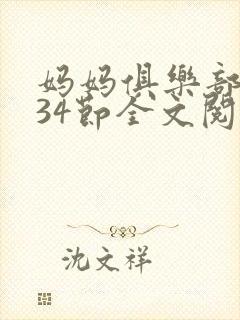 妈妈俱樂部
34節全文閱
沈文祥